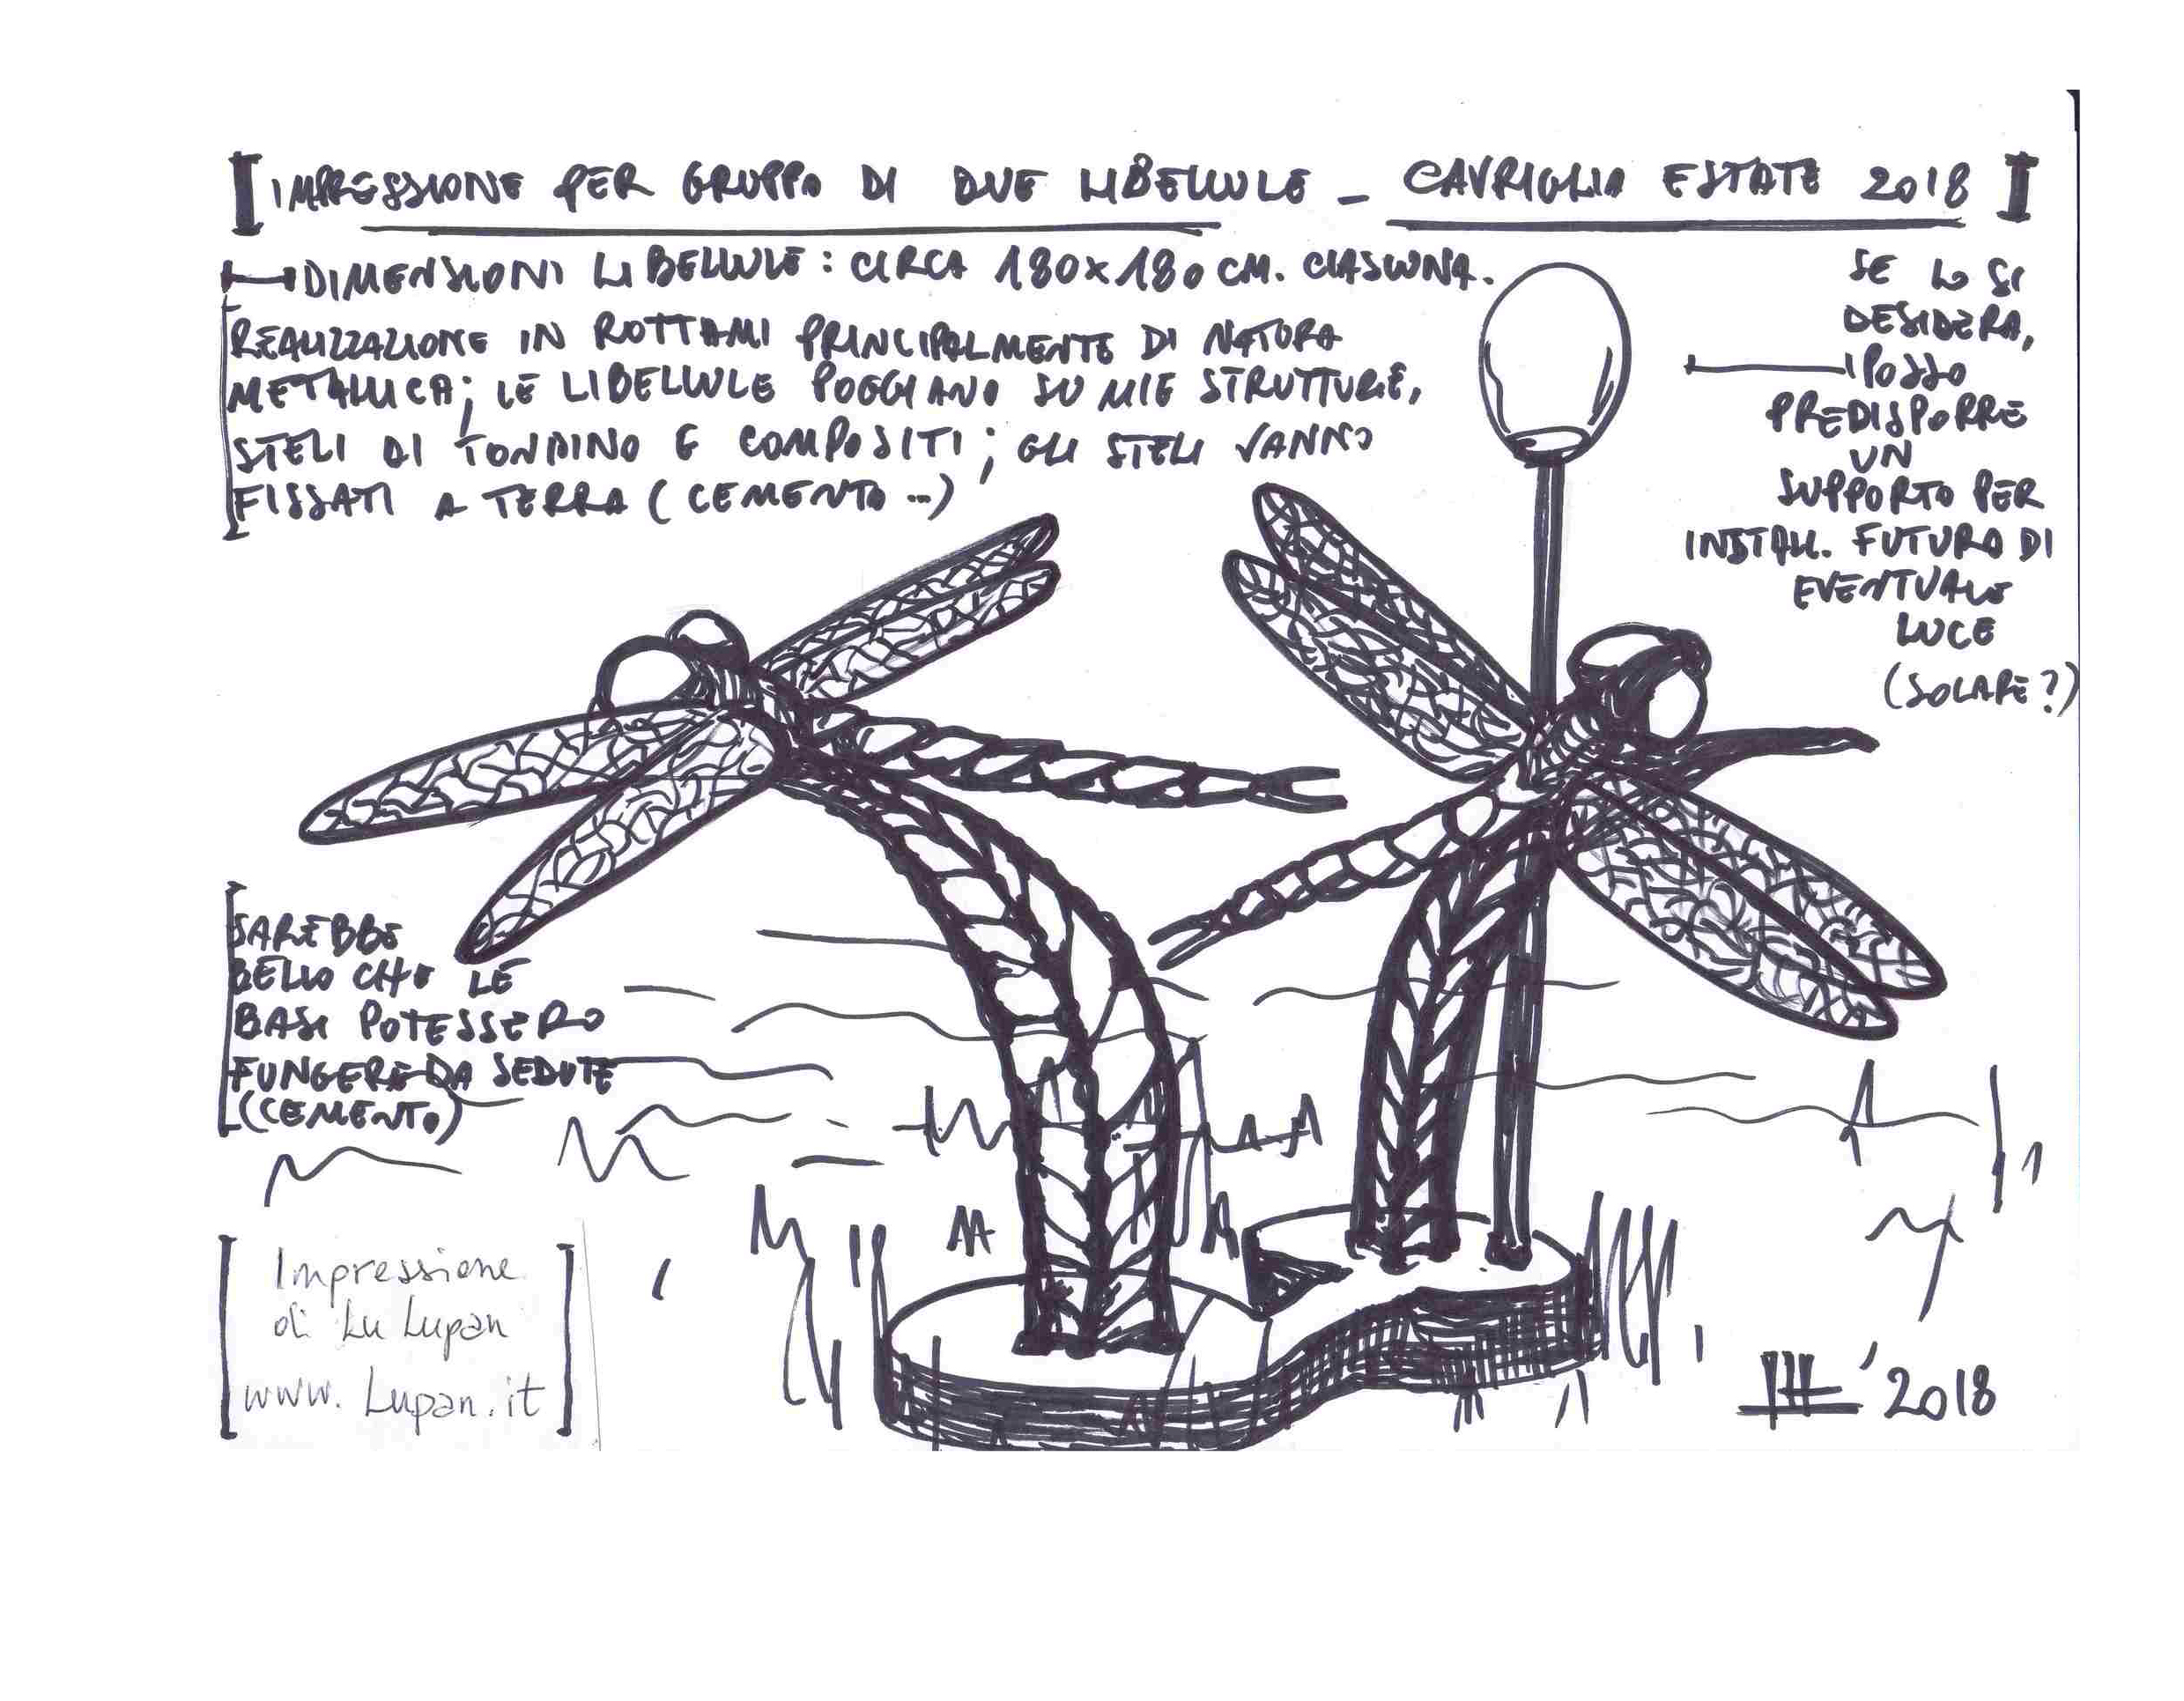 IMPRESSIONE PER GRUPPO DI DUE LIBELLULE - CAVRIGLIA ESTATE 2018
DIMENSIONI LIBELLULE: CIRCA 180x180 CM. CIASCUNA.
REALIZZAZIONE IN ROTTAMI PRINCIPALMENTE DI NATURA
METALLICA; LE LIBELLULE POGGIANO SU MIE STRUTTURE,
STELI DI TONDINO E COMPOSITI; GLI STELI VANNO
FISSATI A TERRA (CEMENTO...)
SE LO SI
DESIDERA,
POSSO
PREDISPORRE
UN
SUPPORTO PER
INSTALL. FUTURA DI
EVENTUALE
LUCE
(SOLARE?)
SAREBBE
BELLO CHE LE
BASI POTESSERO
FUNGERE DA SEDUTE
(CEMENTO)
Impressione
di Lu Lupan
www.Lupan.it
'2018